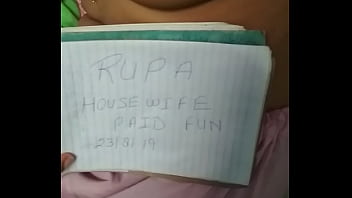 RUPA
HOUSEWIFE
PAID FUN
23/8/19